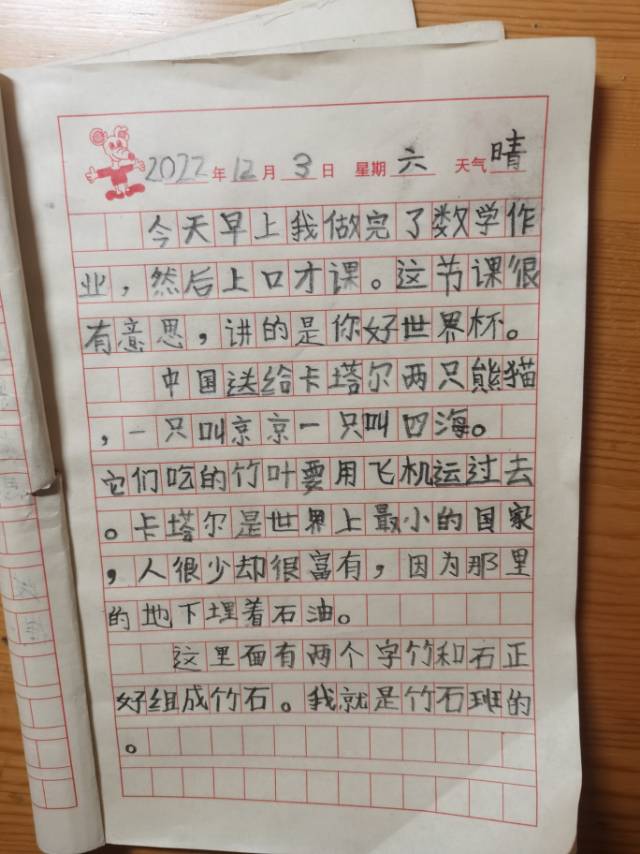 2022年12月3日 星期六 天气晴
今天早上我做完了数学作
业，然后上口才课。这节课很
有意思，讲的是你好世界杯。
中国送给卡塔尔两只熊猫
，一只叫京京一只叫四海。
它们吃的竹叶要用飞机运过去
。卡塔尔是世界上最小的国家
，人很少却很富有，因为那里
的地下埋着石油。
这里面有两个字竹和石正
好组成竹石。我就是竹石班的
。